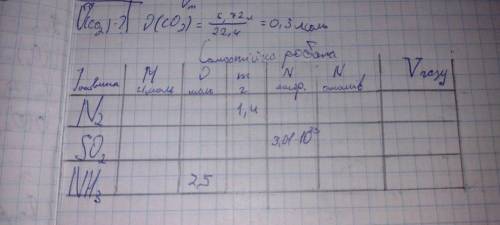 V(CO₂)-? ϑ(CO₂) = 6,72л / 22,4 = 0,3 моль
Самостійна робота
Речовина M г/моль ϑ моль m г N молек. N атомів V газу
N₂ 1,4
SO₂ 3,01·10²³
NH₃ 2,5